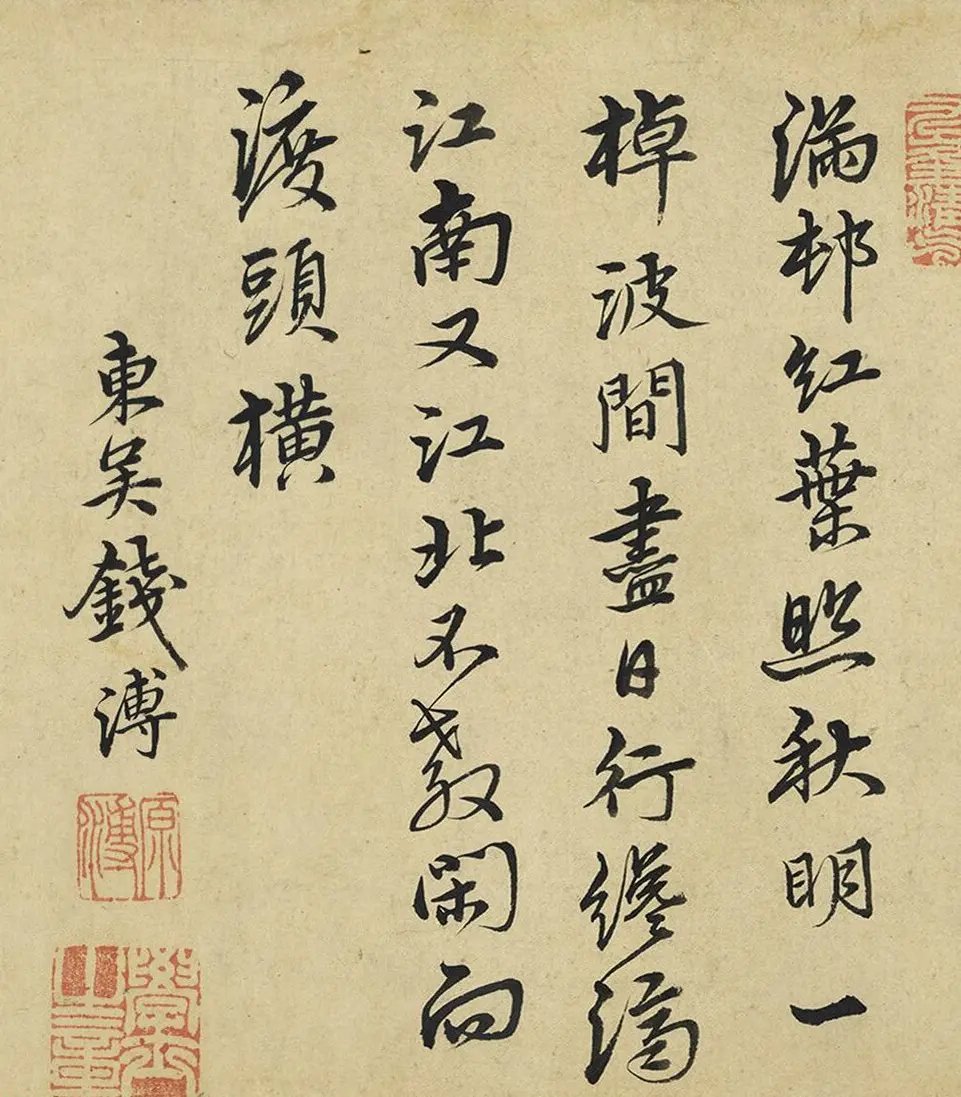 滿邨紅葉照秋明一
棹波間盡日行纔濟
江南又江北不教閑向
渡頭橫
東吴錢溥
原溥